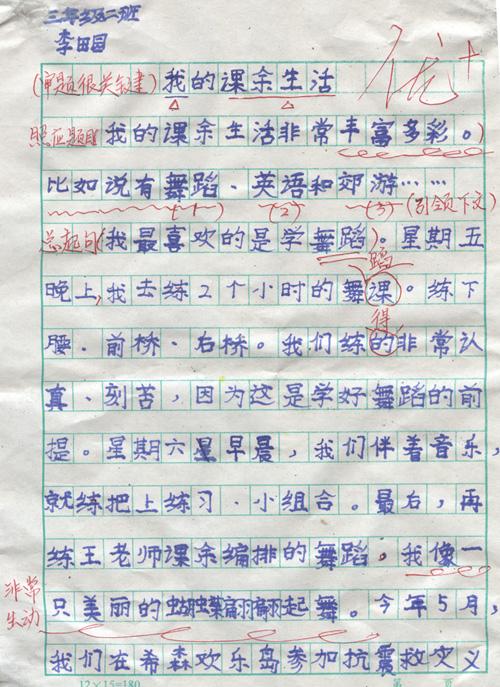 三年级二班
李田园
(审题很关键) 我的课余生活
照应题目 我的课余生活非常丰富多彩。)
比如说有舞蹈、英语和郊游……
(1) (2) (3) (引领下文)
总起句(我最喜欢的是学舞蹈)。星期五
蹈
晚上,我去练2个小时的舞课。练下
得
腰、前桥、右桥。我们练的非常认
真、刻苦，因为这是学好舞蹈的前
提。星期六星早晨，我们伴着音乐,
就练把上练习、小组合。最后,再
练王老师课余编排的舞蹈。我像一
非常生动
只美丽的蝴蝶翩翩起舞。今年5月,
我们在希森欢乐岛参加抗震救灾义
12×15=180 第 页